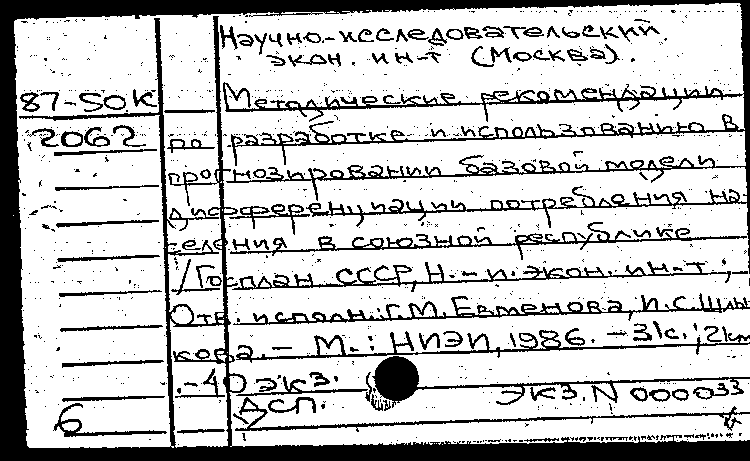 Научно-исследовательский
экон. ин-т (Москва).
87-SOK Методические рекомендации
2062 по разработке и использованию в
прогнозировании базовой модели
дифференциации потребления на-
селения в союзной республике
/Госплан СССР, Н.-и. экон. ин-т ;
Отв. исполн.: Г.М. Евменова, И.С. Шлы-
кова. – М. : НИЭИ, 1986. – 31с. ; 2км
. – 40 экз.
6 ДСП. ЭКЗ. N 000033